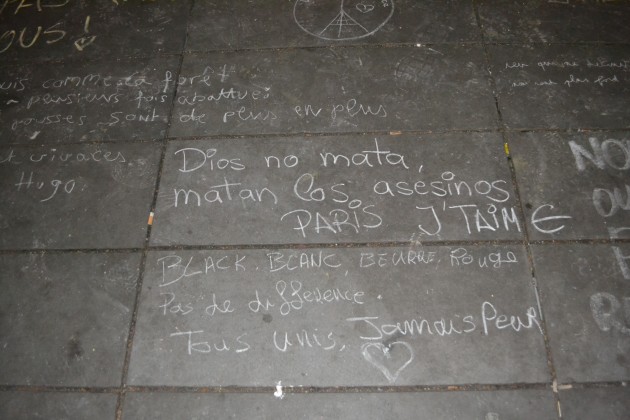 OUS!
uis comme la forêt
plusieurs fois abattue:
pousses sont de plus en plus
et vivaces.
Hugo.
Dios no mata,
matan los asesinos
PARIS J'TAIM€
BLACK. BLANC, BEURRE. Rouge
Pas de différence.
Tous unis, Jamais Peur
NOU
OU